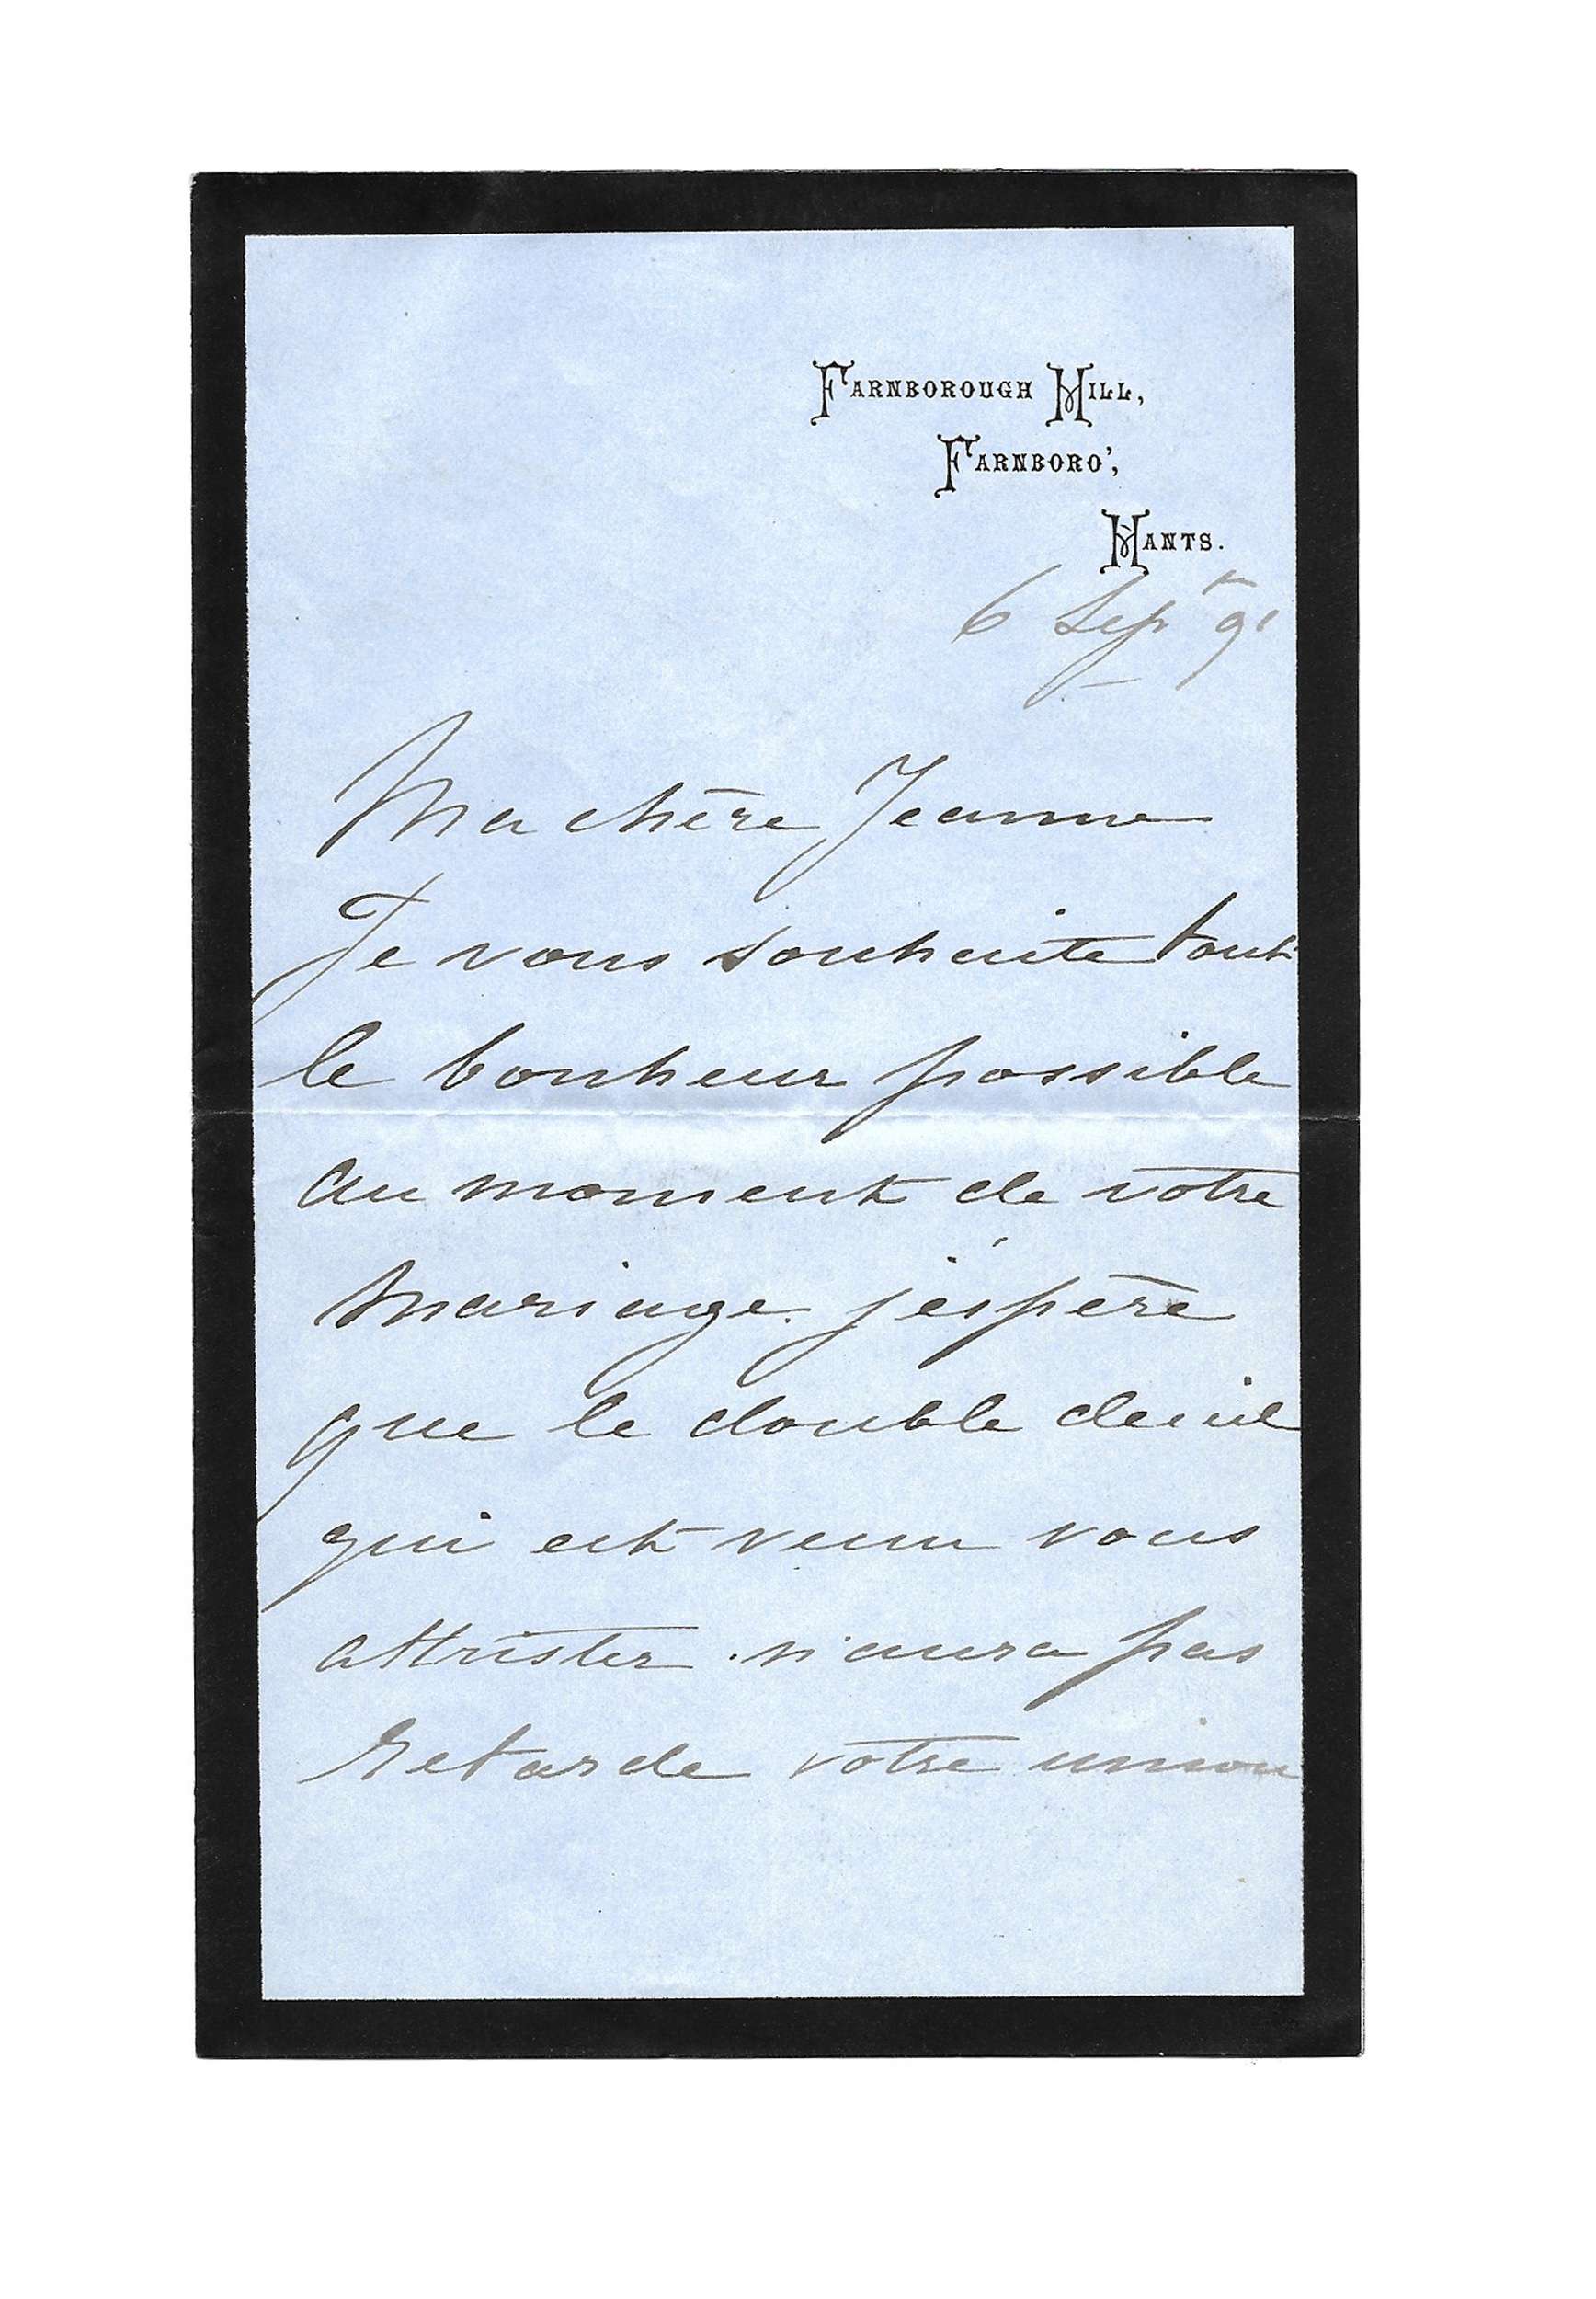 FARNBOROUGH HILL,
FARNBORO',
HANTS.
6 Sepr 91
Ma chère Jeanne
Je vous souhaite tout
le bonheur possible
au moment de votre
mariage. j'éspère
que le double deuil
qui est venu vous
attrister n'aura pas
retarde votre union